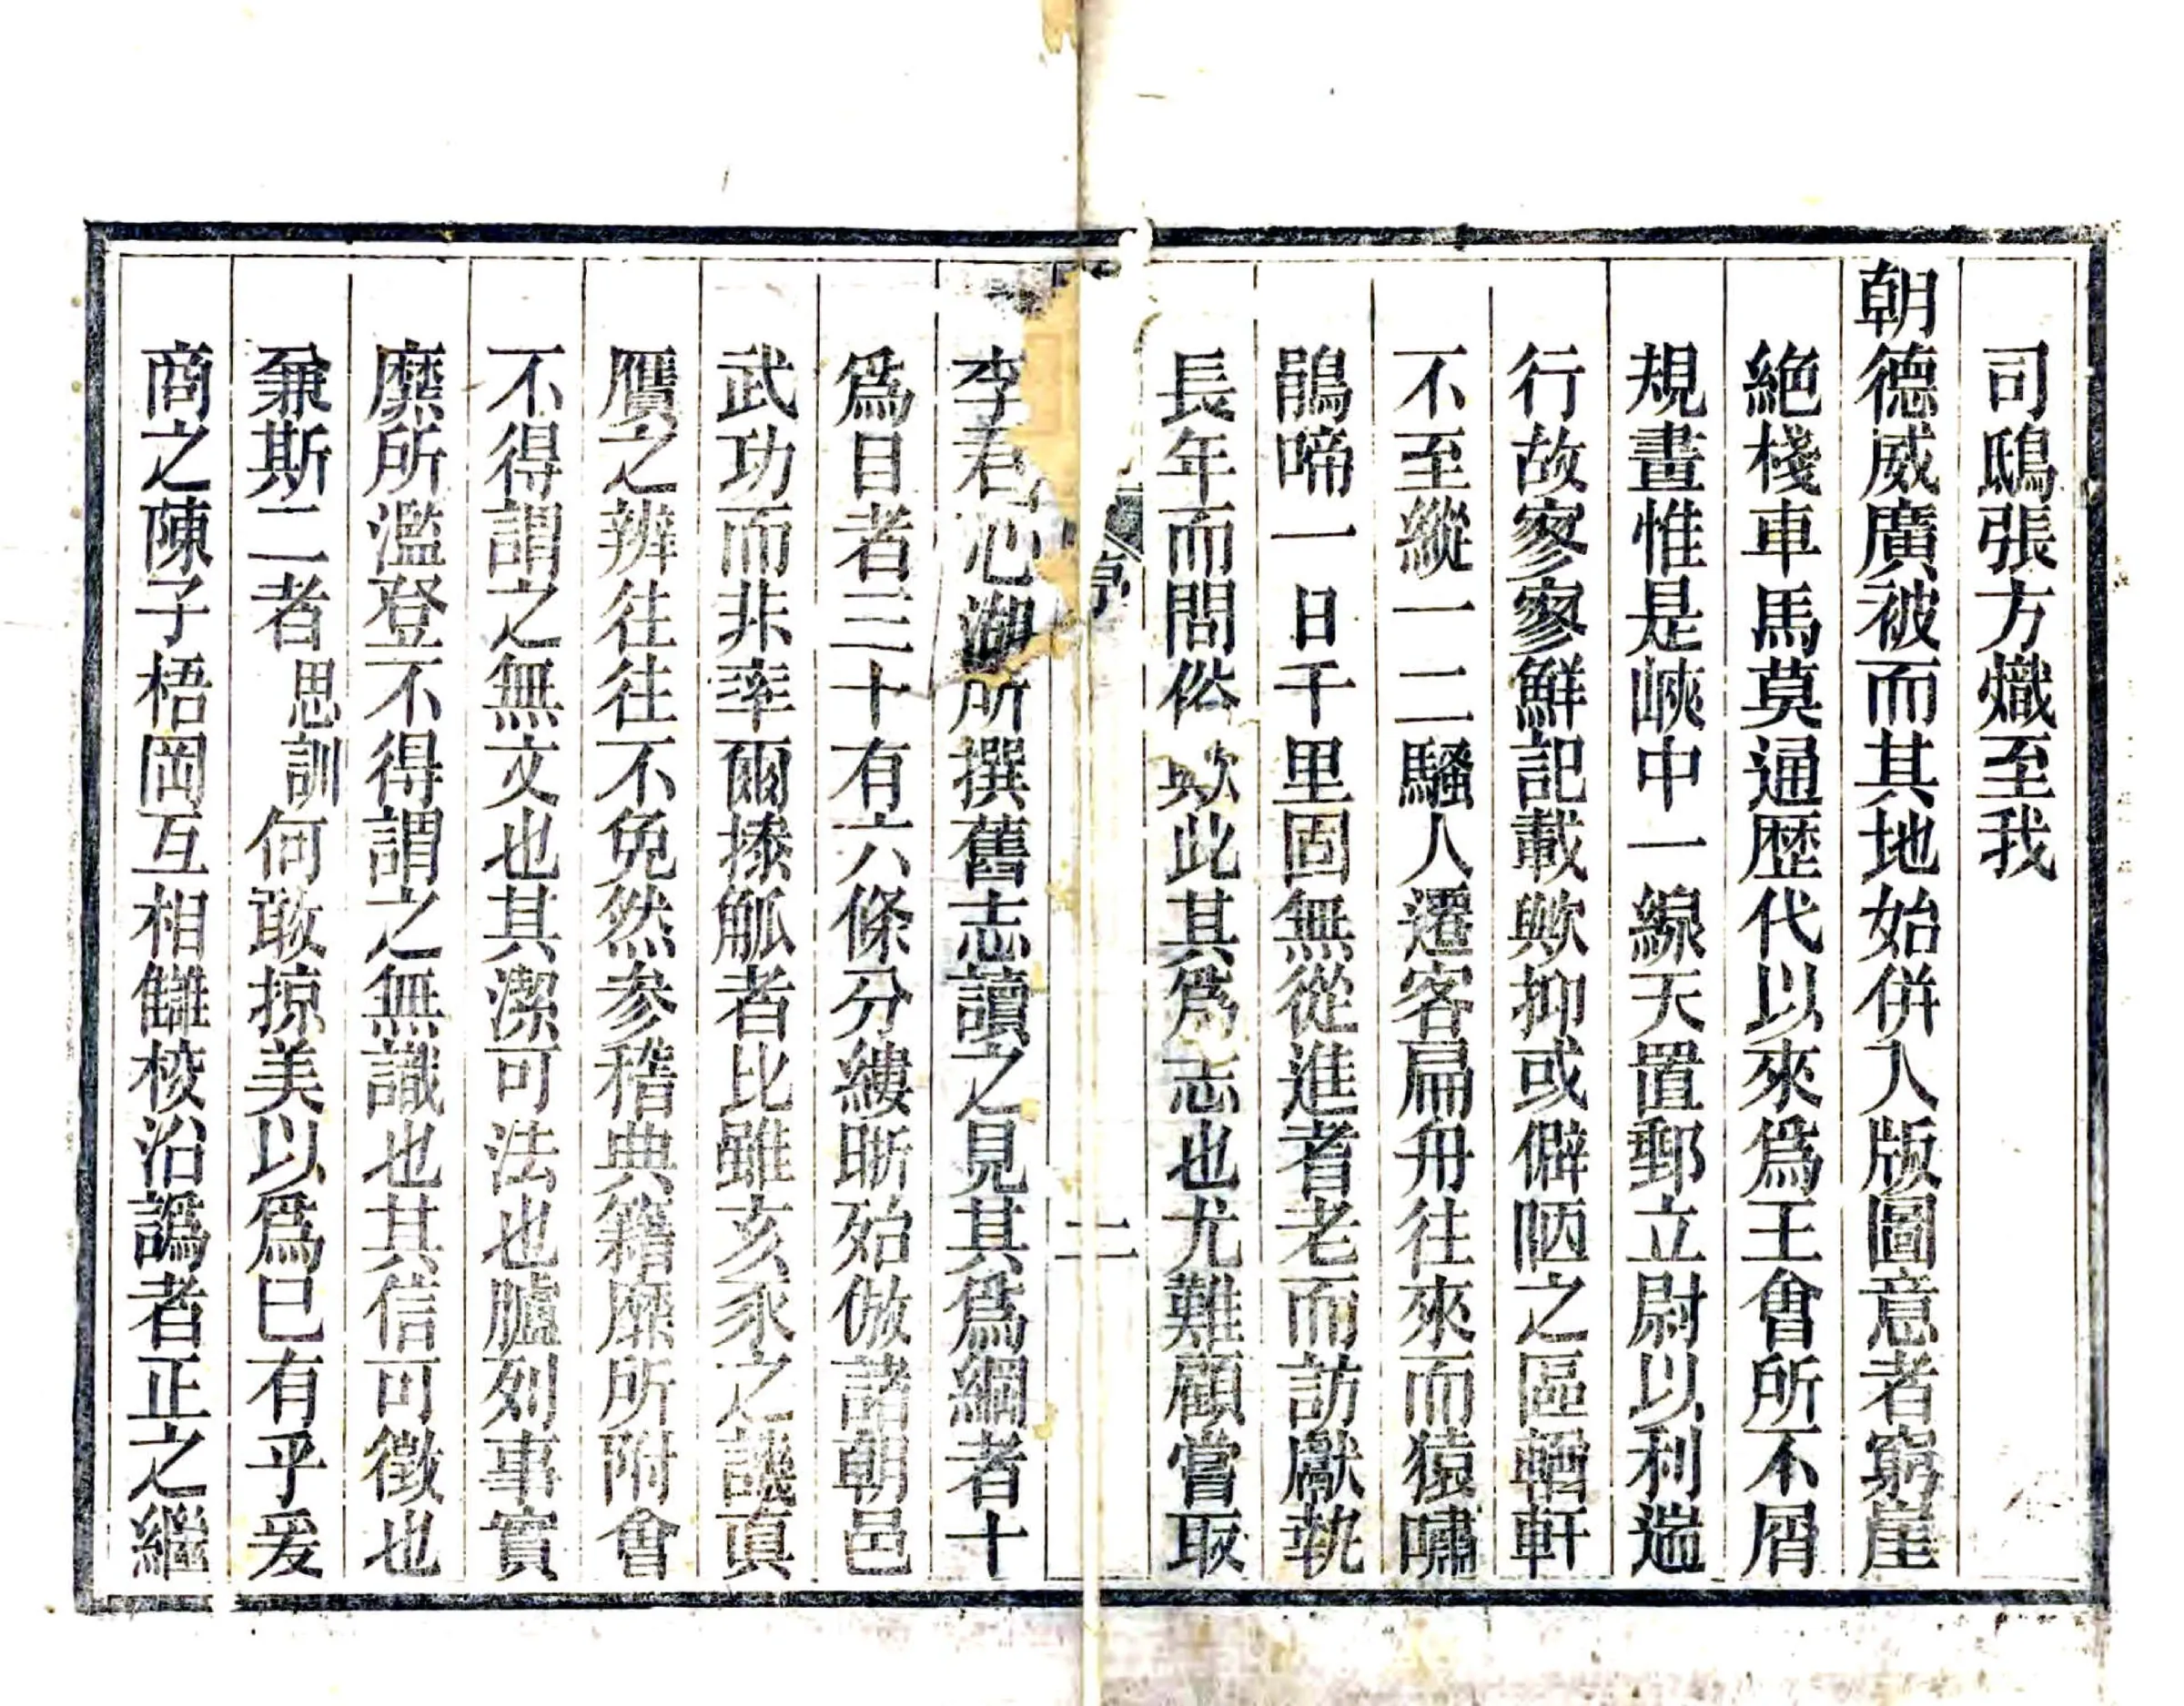 司鴟張方熾至我
朝德威廣被而其地始併入版圖意者窮崖
絶棧車馬莫通歴代以來爲王會所不屑
規畫惟是峽中一線天置郵立尉以利遄
行故寥寥鮮記載歟抑或僻陋之區輶軒
不至縱一二騷人遷客扁舟往來而猿嘯
鵑啼一日千里固無從進耆老而訪獻執
長年而問俗歟此其爲志也尤難顧嘗取
序
二
李君心湖所撰舊志讀之見其爲綱者十
爲目者三十有六條分縷晣殆倣諸朝邑
武功而非率爾操觚者比雖亥豕之譏眞
贋之辨往往不免然參稽典籍靡所附會
不得謂之無文也其潔可法也臚列事實
靡所濫登不得謂之無識也其信可徵也
兼斯二者思訓何敢掠美以爲已有乎爰
商之陳子梧岡互相讎校沿譌者正之繼